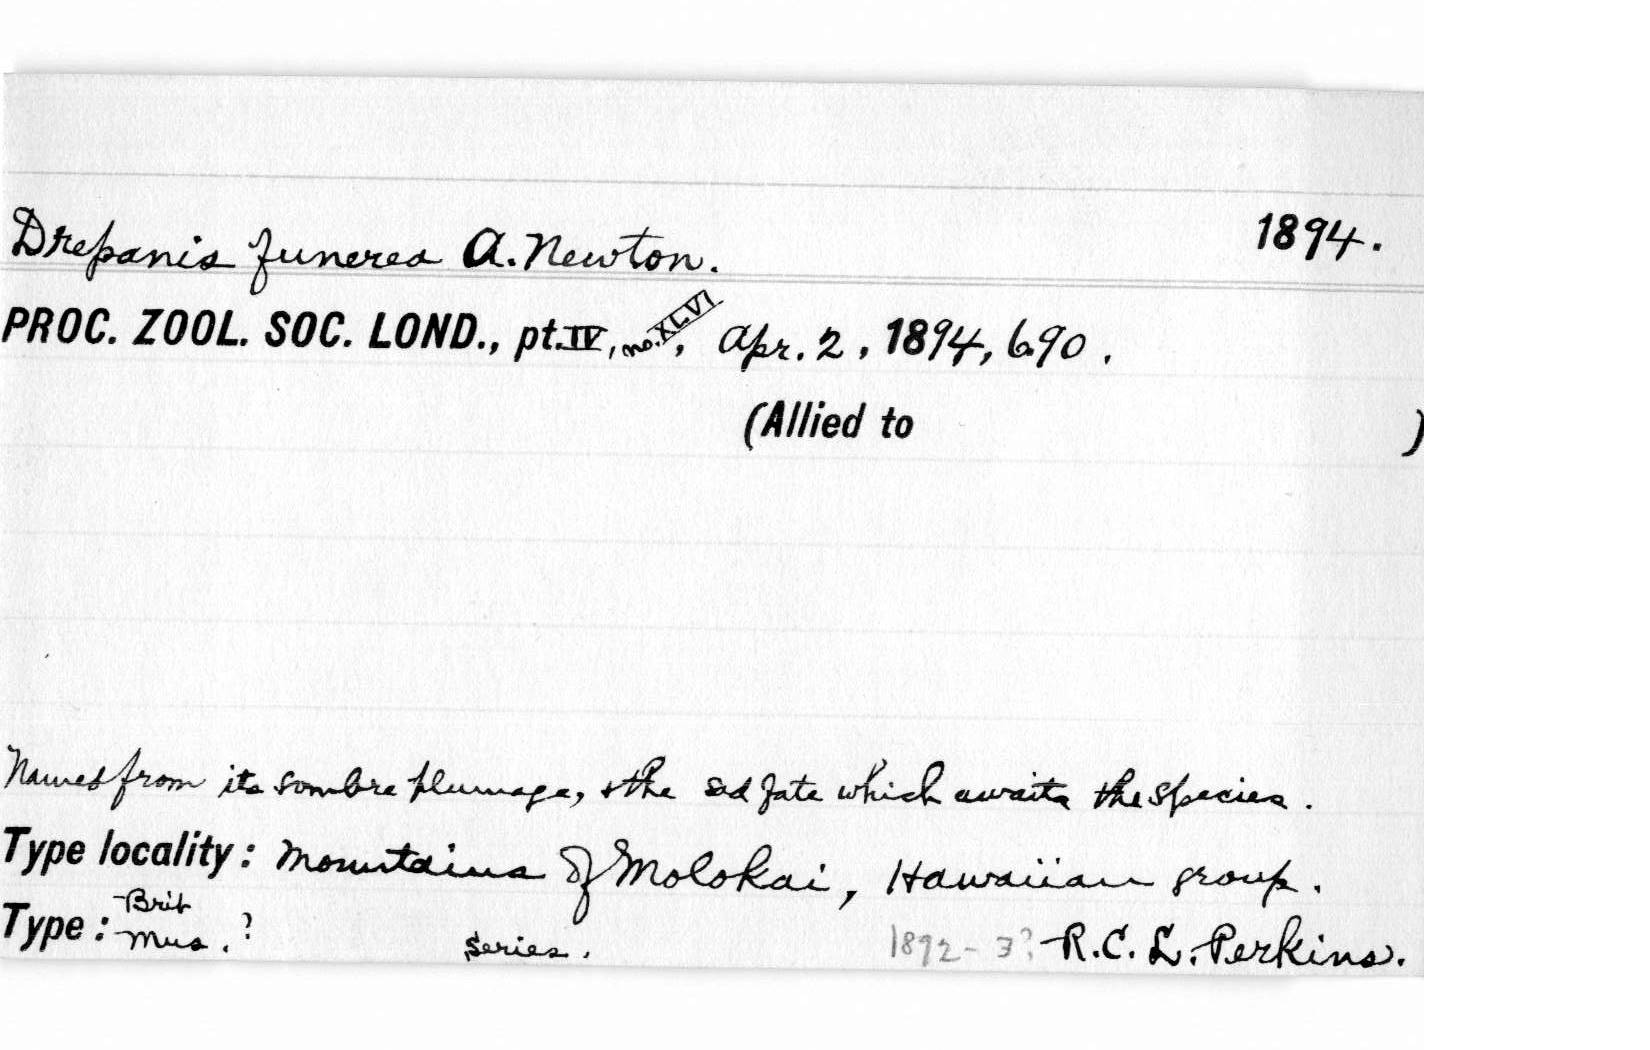 Drepanis funerea A. Newton. 1894.
PROC. ZOOL. SOC. LOND., pt. IV, no. XLVI, Apr. 2, 1894, 690.
(Allied to )
Named from its sombre plumage, & the sad fate which awaits the species.
Type locality: Mountains of Molokai, Hawaiian group.
Type: Brit Mus.? Series. 1892-3? R.C.L. Perkins.